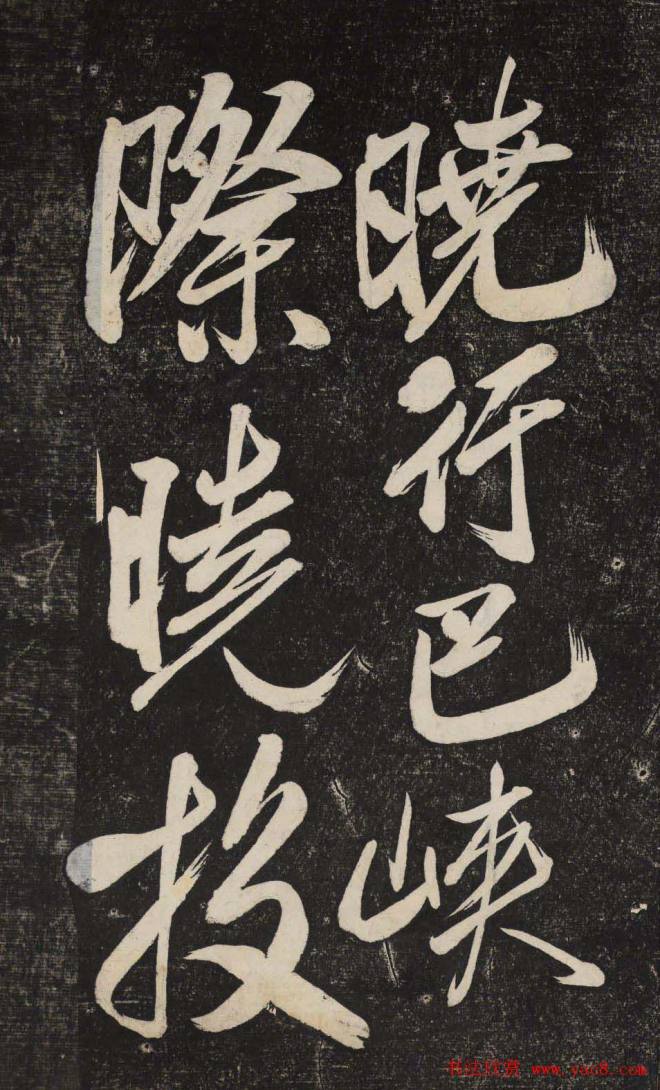 曉行巴峽
際曉投
书法欣赏 www.yac8.com